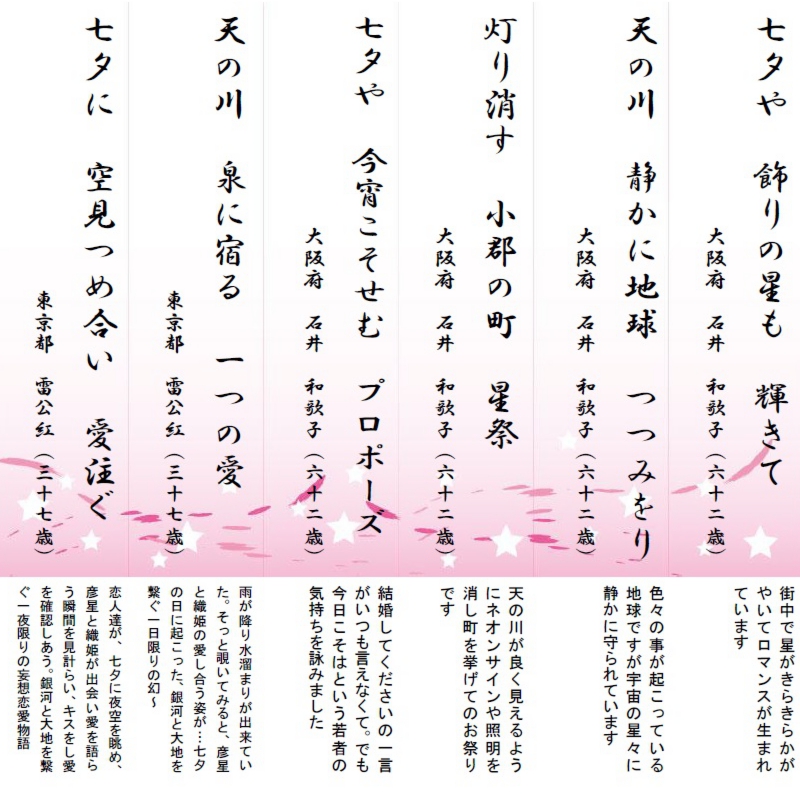 七夕や　飾りの星も　輝きて
大阪府　石井　和歌子（六十二歳）
街中で星がきらきらかが
やいてロマンスが生まれ
ています
天の川　静かに地球　つつみをり
大阪府　石井　和歌子（六十二歳）
色々の事が起こっている
地球ですが宇宙の星々に
静かに守られています
灯り消す　小郡の町　星祭
大阪府　石井　和歌子（六十二歳）
天の川が良く見えるよう
にネオンサインや照明を
消し町を挙げてのお祭り
です
七夕や　今宵こそせむ　プロポーズ
大阪府　石井　和歌子（六十二歳）
結婚してくださいの一言
がいつも言えなくて。でも
今日こそはという若者の
気持ちを詠みました
天の川　泉に宿る　一つの愛
東京都　雷公紅（三十七歳）
雨が降り水溜まりが出来てい
た。そっと覗いてみると、彦星
と織姫の愛し合う姿が…七夕
の日に起こった、銀河と大地を
繋ぐ一日限りの幻～
七夕に　空見つめ合い　愛注ぐ
東京都　雷公紅（三十七歳）
恋人達が、七夕に夜空を眺め、
彦星と織姫が出会い愛を語ら
う瞬間を見計らい、キスをし愛
を確認しあう。銀河と大地を繋
ぐ一夜限りの妄想恋愛物語